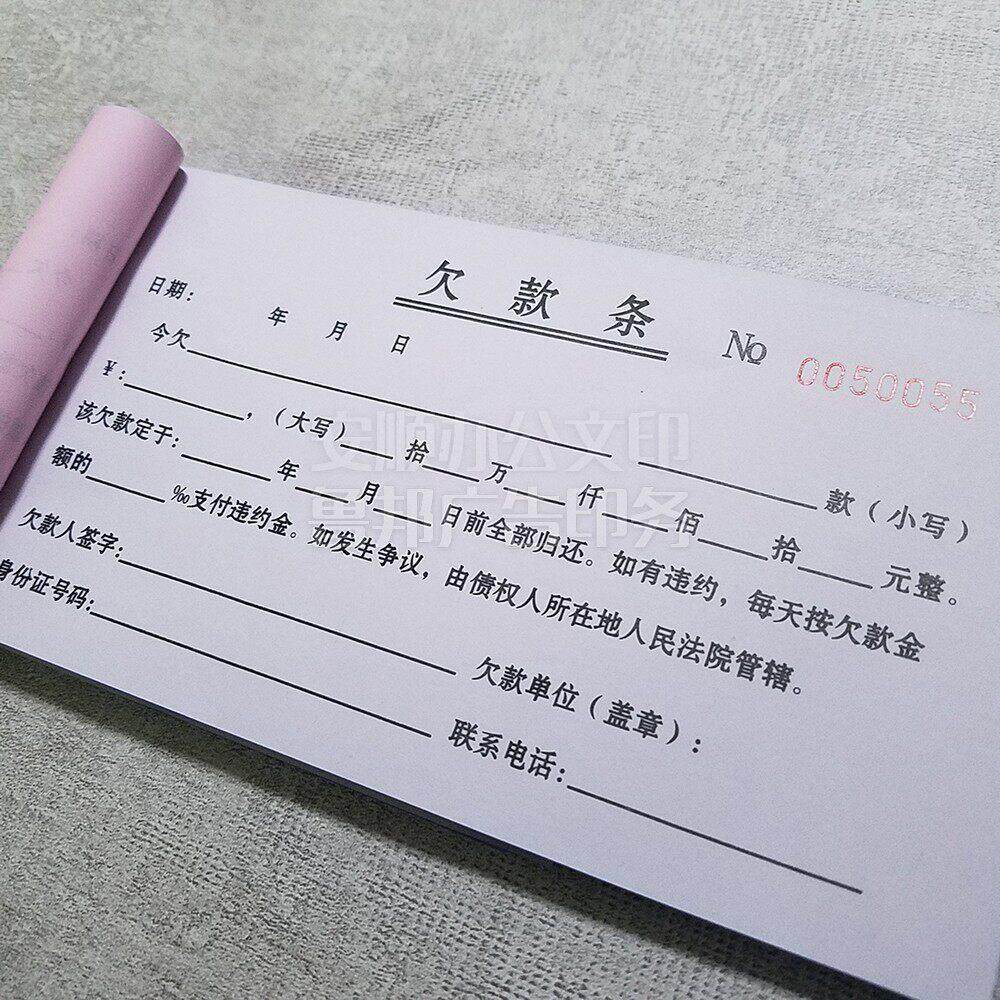 欠款条
No 0050055
日期: 年 月 日
今欠 款(小写)
¥: ,(大写) 拾 万 仟 佰 拾 元整。
该欠款定于: 年 月 日前全部归还。如有违约，每天按欠款金
额的 ‰支付违约金。如发生争议，由债权人所在地人民法院管辖。
欠款人签字: 欠款单位(盖章):
身份证号码: 联系电话:
安顺办公文印
鲁邦广告印务